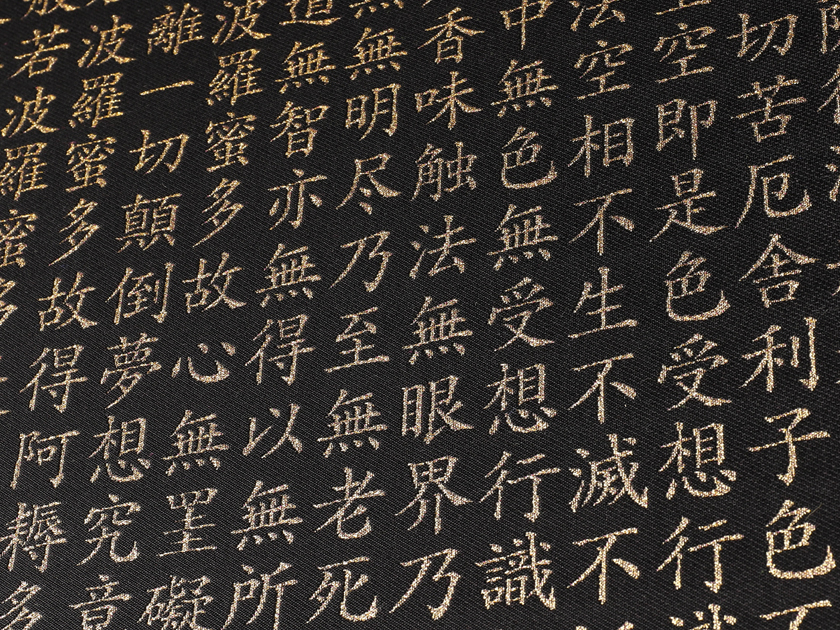 切苦厄舍利子色不
空空即是色受想行識
法空相不生不滅不
中無色無受想行識
香味触法無眼界乃
無無明尽乃至無老死
道無智亦無得以無所
波羅蜜多故心無罣礙
離一切顛倒夢想究竟
波羅蜜多故得阿耨多
若波羅蜜多